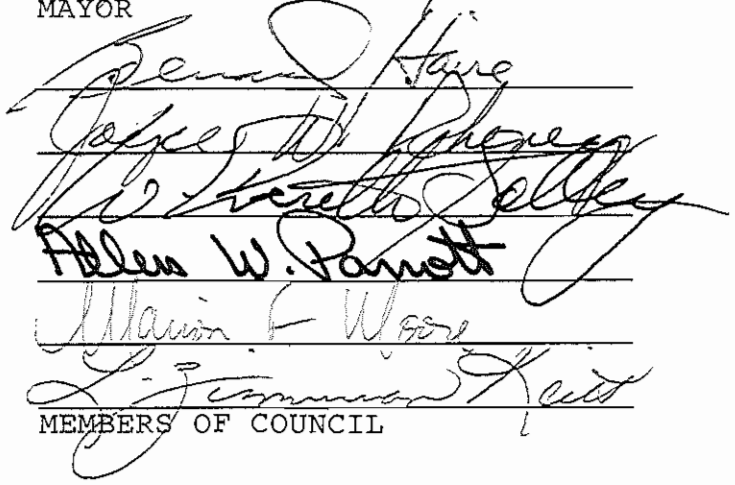 MAYOR
Bernard Haire
Joyce W.
W. Everette Salley
Allen W. Parrott
Marion F Moore
L. Zimmerman Keitt
MEMBERS OF COUNCIL